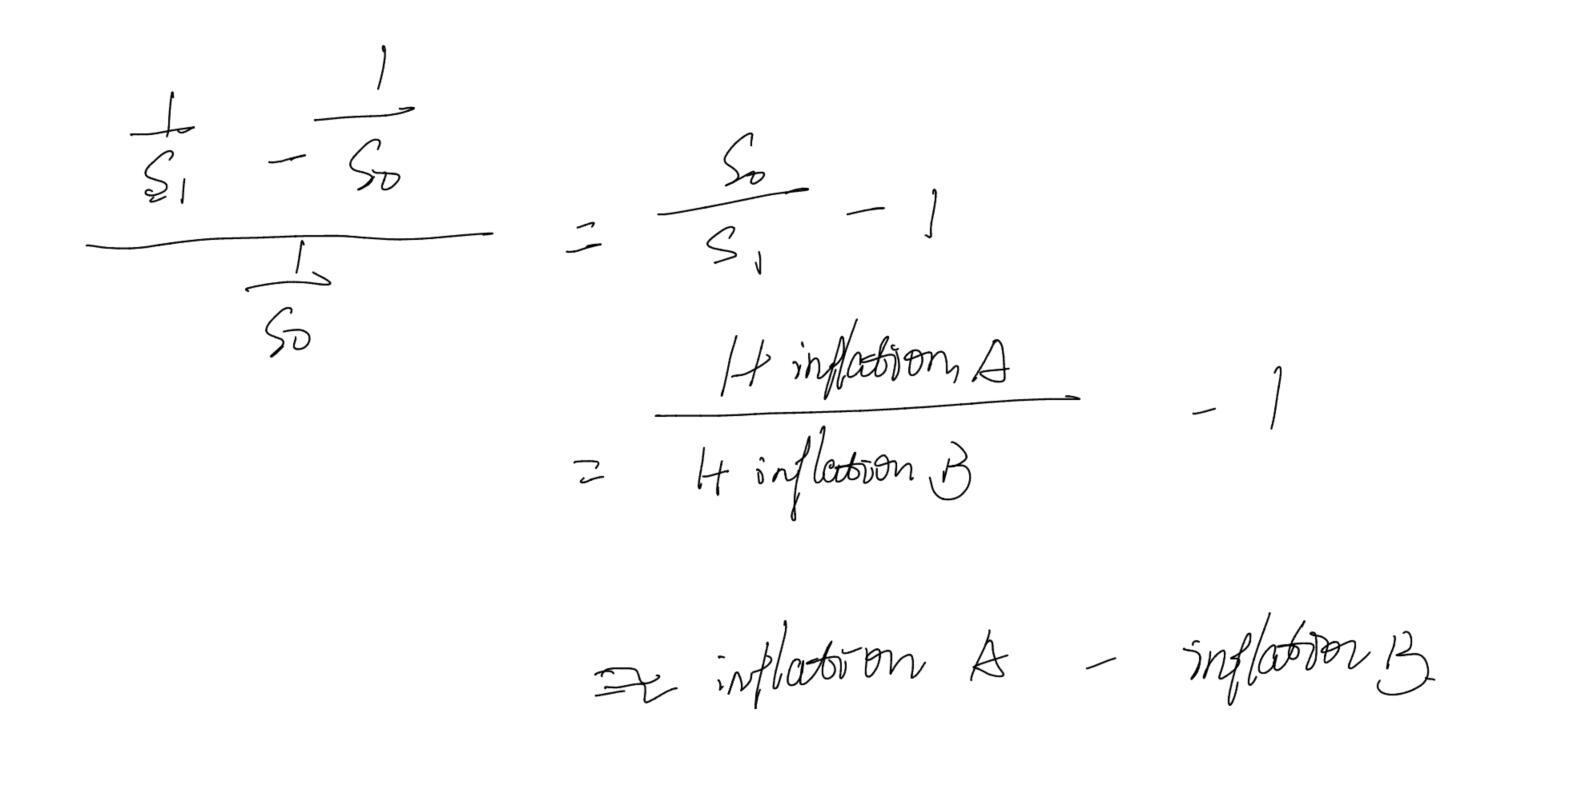 (1/S₁ - 1/S₀) / (1/S₀) = S₀/S₁ - 1
= (1+ inflation A) / (1+ inflation B) - 1
≈ inflation A - inflation B